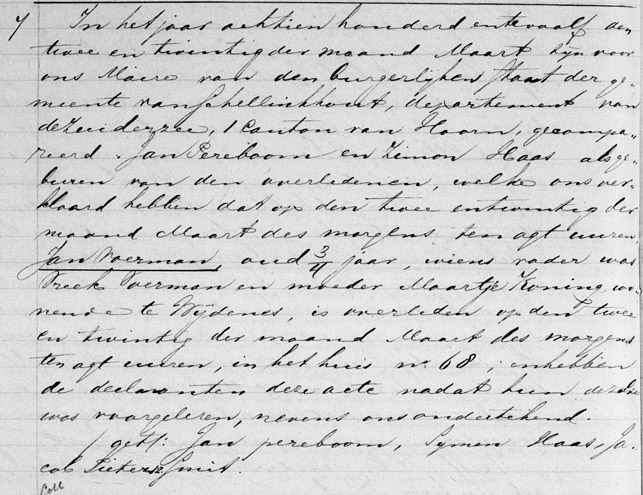 7 In het jaar achttien honderd en twaalf den
twee en twintig der maand Maart zijn voor
ons Maire van den burgerlijken staat der ge-
meente van Schellinkhout, departement van
de Zuiderzee, 1 Canton van Hoorn, gecompa-
reerd. Jan Pereboom en Zimon Haas als ge-
buren van den overledenen, welke ons ver-
klaard hebben dat op den twee en twintig der
maand Maart des morgens ten agt uuren
Jan Voerman, oud 3/4 jaar, wiens vader was
Freek Voerman en moeder Maartje Koning, wo-
nende te Wijdenes, is overleden op den twee
en twintig der maand Maart des morgens
ten agt uuren, in het huis no. 68, en hebben
de declaranten deze acte nadat hun dezelve
was voorgelezen, nevens ons onderteekend.
/get/: Jan pereboom, Symen Haas, Ja-
cob Pietersz Smit.
Coll